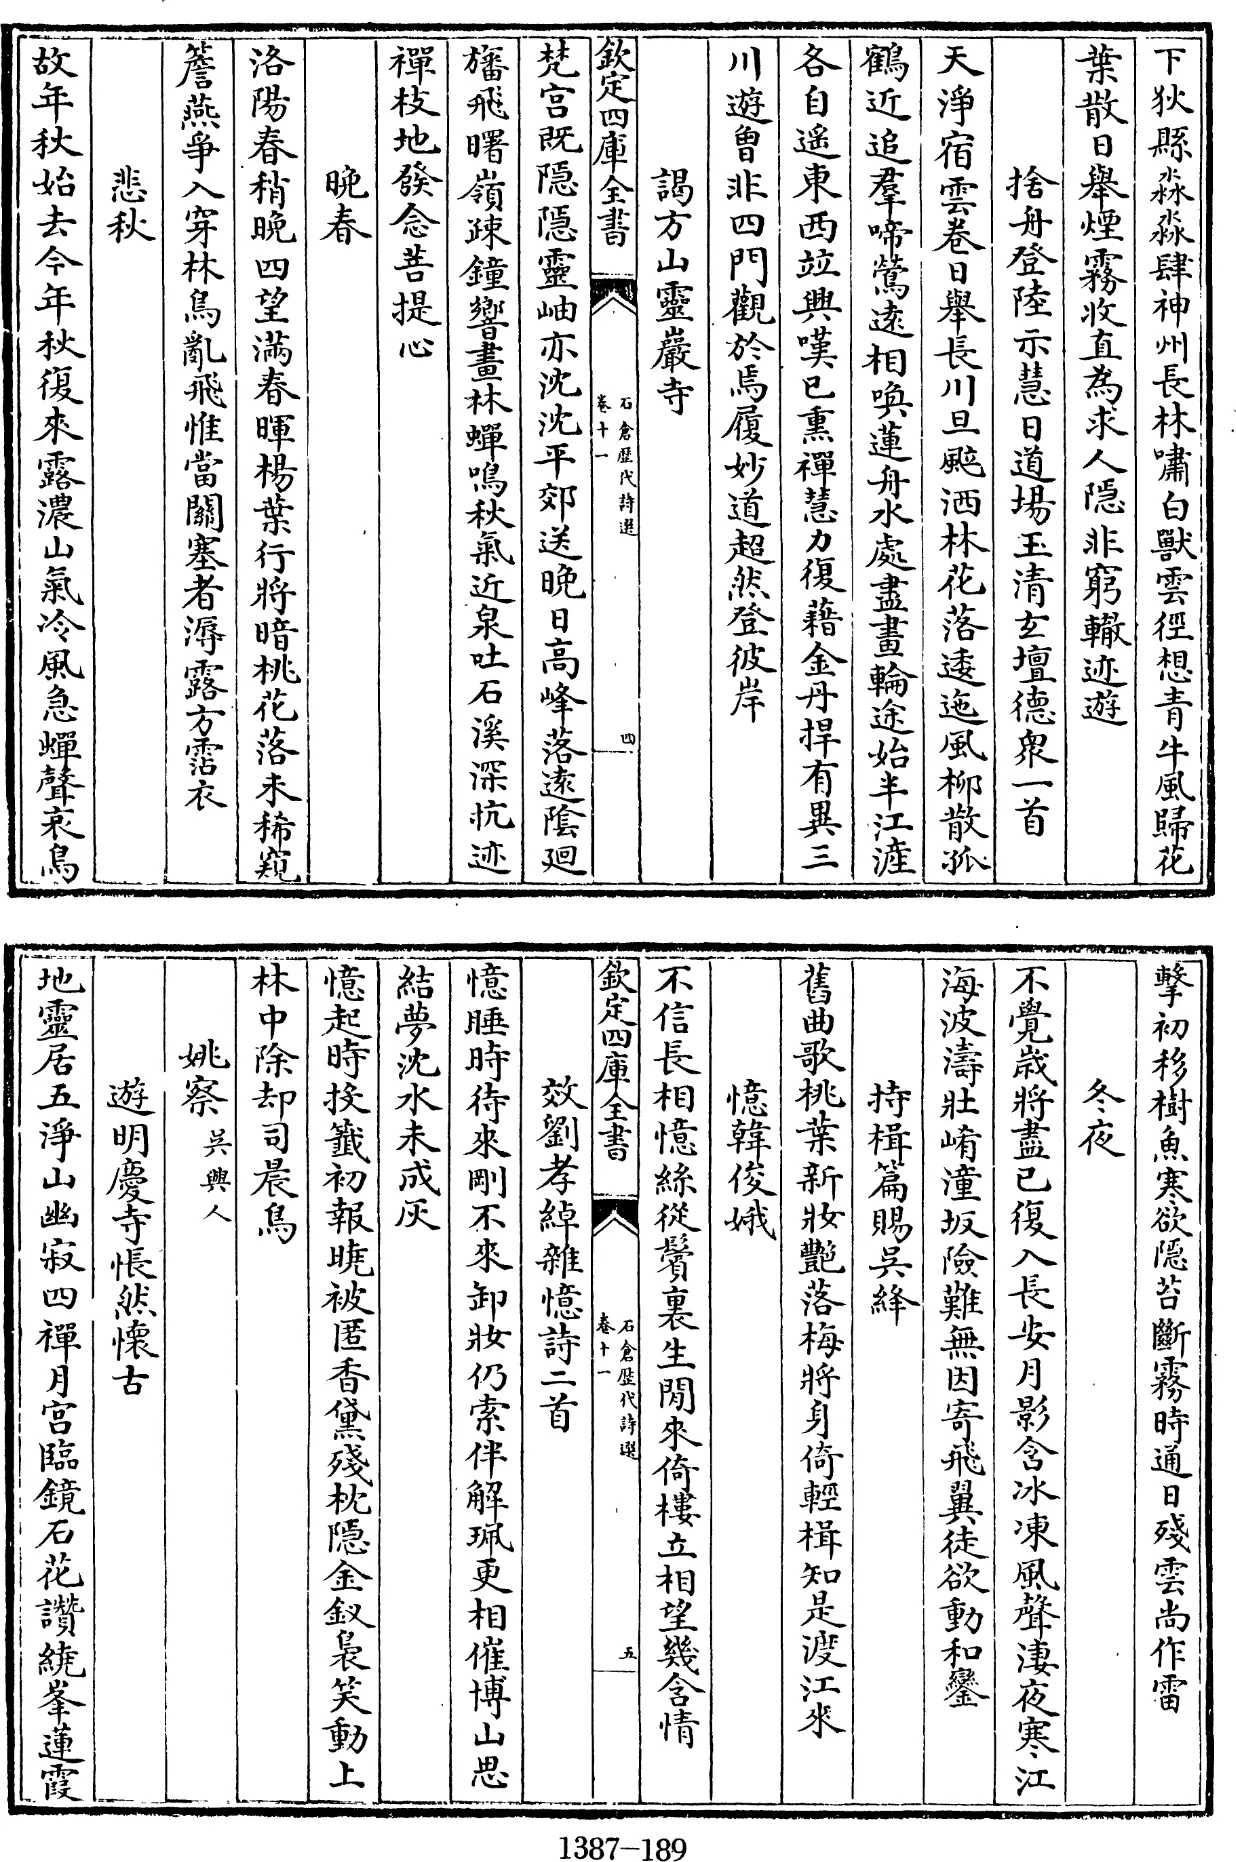 下狄縣淼淼肆神州長林嘯白獸雲徑想青牛風歸花
葉散日舉煙霧收直為求人隱非窮轍迹遊
捨舟登陸示慧日道場玉清玄壇德衆一首
天淨宿雲卷日舉長川旦颭洒林花落逶迤風柳散孤
鶴近追羣啼鶯遠相喚蓮舟水處盡畫輪途始半江滙
各自遥東西竝興嘆已熏禪慧力復藉金丹捍有異三
川遊曽非四門觀於焉履妙道超然登彼岸
謁方山靈巖寺
欽定四庫全書
石倉歷代詩選
卷十一
四
梵宮既隱隱靈岫亦沈沈平郊送晚日高峰落遠陰廻
旛飛曙嶺踈鐘響晝林蟬鳴秋氣近泉吐石溪深抗迹
禪枝地發念菩提心
晩春
洛陽春稍晩四望滿春暉楊葉行將暗桃花落未稀窺
簷燕爭入穿林鳥亂飛惟當關塞者溽露方霑衣
悲秋
故年秋始去今年秋復來露濃山氣冷風急蟬聲哀鳥
擊初移樹魚寒欲隱苔斷霧時通日殘雲尚作雷
冬夜
不覺歲將盡已復入長安月影含冰凍風聲淒夜寒江
海波濤壯崤潼坂險難無因寄飛翼徒欲動和鑾
持楫篇賜吳絳
舊曲歌桃葉新妝艷落梅將身倚輕楫知是渡江來
憶韓俊娥
不信長相憶絲從鬢裏生閒來倚樓立相望幾含情
欽定四庫全書
石倉歷代詩選
卷十一
五
效劉孝綽雜憶詩二首
憶睡時待來剛不來卸妝仍索伴解珮更相催博山思
結夢沈水未成灰
憶起時投籤初報曉被匿香黛殘枕隱金釵裊笑動上
林中除却司晨鳥
姚察 吳興人
遊明慶寺悵然懷古
地靈居五淨山幽寂四禪月宮臨鏡石花讚繞峯蓮霞
1387-189